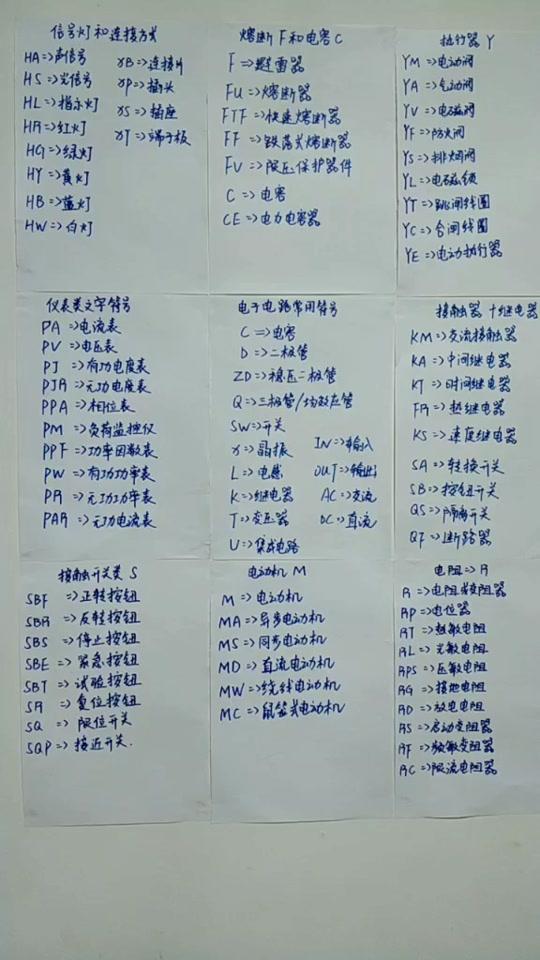 信号灯和连接方式
HA=>声信号
HS=>光信号
HL=>指示灯
HR=>红灯
HG=>绿灯
HY=>黄灯
HB=>蓝灯
HW=>白灯
XB=>连接片
XP=>插头
XS=>插座
XT=>端子板
熔断F和电容C
F=>避雷器
FU=>熔断器
FTF=>快速熔断器
FF=>跌落式熔断器
FV=>限压保护器件
C=>电容
CE=>电力电容器
执行器Y
YM=>电动阀
YA=>气动阀
YV=>电磁阀
YF=>防火阀
YS=>排烟阀
YL=>电磁锁
YT=>跳闸线圈
YC=>合闸线圈
YE=>电动执行器
仪表类文字符号
PA=>电流表
PV=>电压表
PJ=>有功电度表
PJR=>无功电度表
PPA=>相位表
PM=>负荷监控仪
PPF=>功率因数表
PW=>有功功率表
PR=>无功功率表
PAR=>无功电流表
电子电路常用符号
C=>电容
D=>二极管
ZD=>稳压二极管
Q=>三极管/场效应管
SW=>开关
X=>晶振
L=>电感
K=>继电器
T=>变压器
U=>集成电路
IN=>输入
OUT=>输出
AC=>交流
DC=>直流
接触器+继电器
KM=>交流接触器
KA=>中间继电器
KT=>时间继电器
FR=>热继电器
KS=>速度继电器
SA=>转换开关
SB=>按钮开关
QS=>隔离开关
QF=>断路器
接触开关类S
SBF=>正转按钮
SBR=>反转按钮
SBS=>停止按钮
SBE=>紧急按钮
SBT=>试验按钮
SR=>复位按钮
SQ=>限位开关
SQP=>接近开关.
电动机M
M=>电动机
MA=>异步电动机
MS=>同步电动机
MD=>直流电动机
MW=>绕线电动机
MC=>鼠笼式电动机
电阻=>R
R=>电阻或变阻器
RP=>电位器
RT=>热敏电阻
RL=>光敏电阻
RPS=>压敏电阻
RG=>接地电阻
RD=>放电电阻
RS=>启动变阻器
RF=>频敏变阻器
RC=>限流电阻器